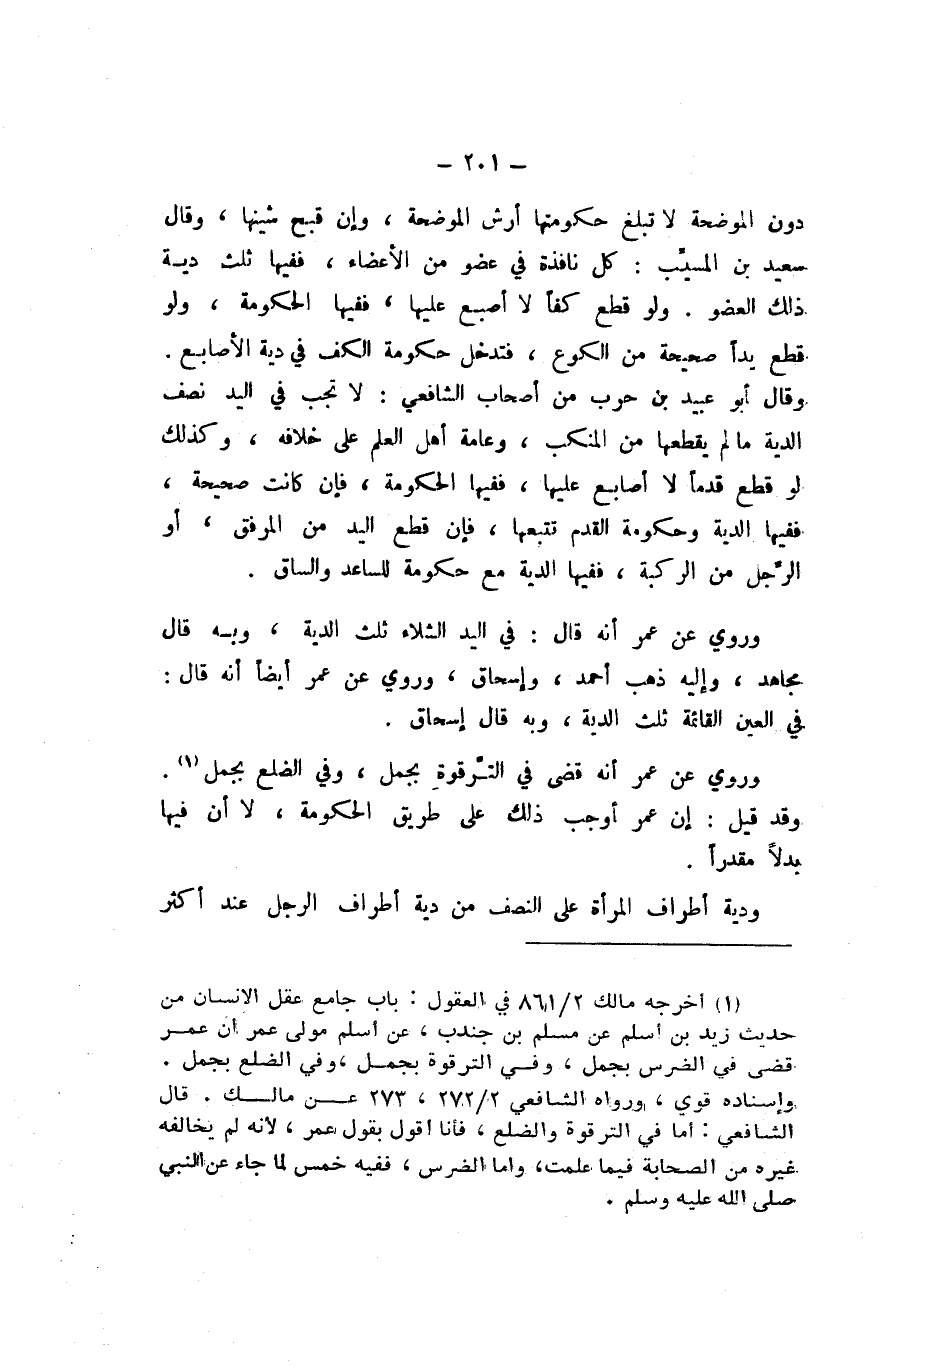 – ٢٠١ –
دون الموضحة لا تبلغ حكومتها أرش الموضحة ، وإن قبح شينها ، وقال
سعيد بن المسيَّب : كل نافذة في عضو من الأعضاء ، ففيها ثلث ديـة
ذلك العضو . ولو قطع كفاً لا أصبع عليها ، ففيها الحكومة ، ولو
قطع يداً صحيحة من الكوع ، فتدخل حكومة الكف في دية الأصابع .
وقال أبو عبيد بن حرب من أصحاب الشافعي : لا تجب في اليد نصف
الدية ما لم يقطعها من المنكب ، وعامة أهل العلم على خلافه ، وكذلك
لو قطع قدماً لا أصابع عليها ، ففيها الحكومة ، فإن كانت صحيحة ،
ففيها الدية وحكومة القدم تتبعها ، فإن قطع اليد من المرفق ، أو
الرِّجل من الركبة ، ففيها الدية مع حكومة للساعد والساق .
وروي عن عمر أنه قال : في اليد الشلاء ثلث الدية ، وبـه قال
مجاهد ، وإليه ذهب أحمد ، وإسحاق ، وروي عن عمر أيضاً أنه قال :
في العين القائمة ثلث الدية ، وبه قال إسحاق .
وروي عن عمر أنه قضى في التَّرقوةِ بجمل ، وفي الضلع بجمل (١) .
وقد قيل : إن عمر أوجب ذلك على طريق الحكومة ، لا أن فيها
بدلاً مقدراً .
ودية أطراف المرأة على النصف من دية أطراف الرجل عند أكثر
(١) أخرجه مالك ٨٦١/٢ في العقول : باب جامع عقل الانسان من
حديث زيد بن أسلم عن مسلم بن جندب ، عن أسلم مولى عمر أن عمـر
قضى في الضرس بجمل ، وفـي الترقوة بجمـل ،وفي الضلع بجمل .
وإسناده قوي ، ورواه الشافعي ٢٧٢/٢ ، ٢٧٣ عـن مالـك . قال
الشافعي : أما في الترقوة والضلع ، فأنا أقول بقول عمر ، لأنه لم يخالفه
غيره من الصحابة فيما علمت، وأما الضرس ، ففيه خمس لما جاء عن النبي
صلى الله عليه وسلم .